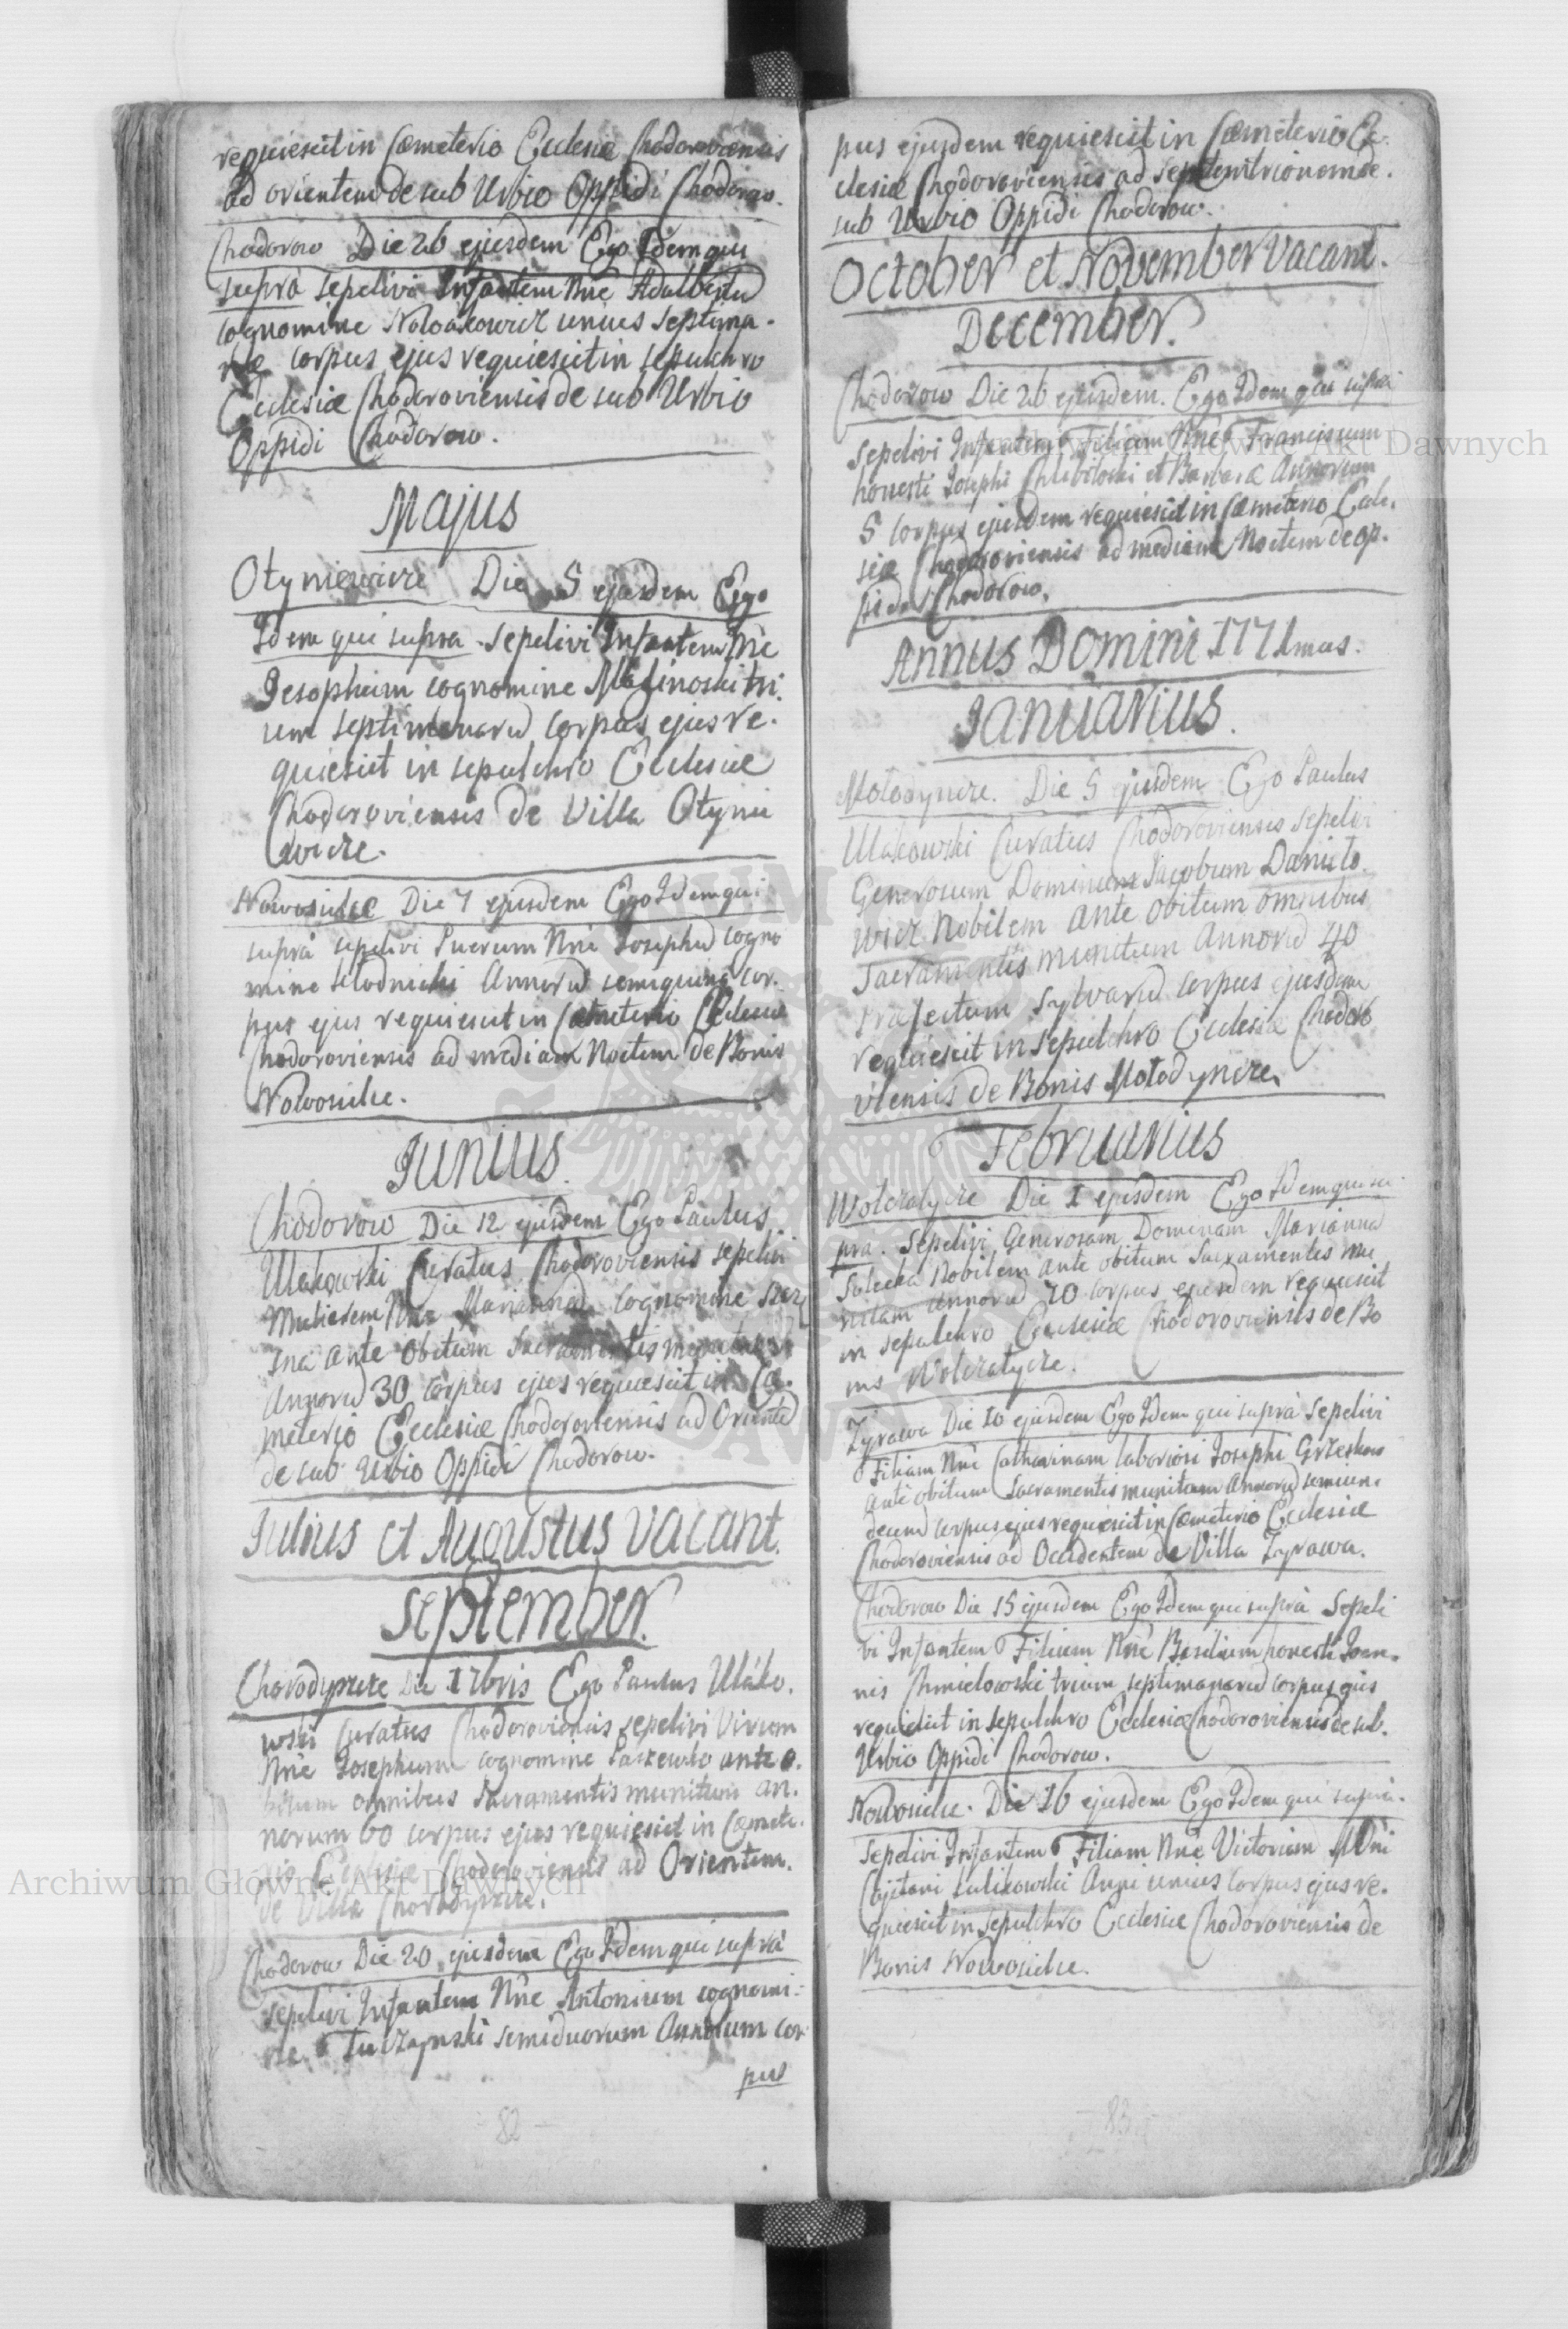 requiescit in Cæmeterio Ecclesiæ Chodoroviensis
ad orientem de sub Urbio Oppidi Chodorow.
Chodorow Die 26 ejusdem Ego Idem qui
supra sepelivi Infantem Nñe Adalbertū
cognomine Nowakowicz unius septima-
næ corpus ejus requiescit in sepulchro
Ecclesiæ Chodoroviensis de sub Urbio
Oppidi Chodorow.
Majus
Otyniewicze Die 5 ejusdem Ego
Idem qui supra sepelivi Infantem Nñe
Jesophum cognomine Malinoski tri
um septimanarū corpus ejus re-
quiescit in sepulchro Ecclesiæ
Chodoroviensis de Villa Otynie
wicze.
Nowosielce Die 7 ejusdem Ego Idem qui
suprà sepelivi Puerum Nñe Josephū cogno
mine Annorū semiquinq cor-
pus ejus requiescit in Cæmeterio Ecclesiæ
Chodoroviensis ad mediam Noctem de Bonis
Nowosielce.
Junius.
Chodorow Die 12 ejusdem Ego Paulus
Ulakowski Curatus Chodoroviensis sepelivi
Mulierem Nñe Mariannā cognomine
ante obitum Sacramentis munitam
Annorū 30 corpus ejus requiescit in Cæ-
meterio Ecclesiæ Chodoroviensis ad Orientē
de sub Urbio Oppidi Chodorow.
Julius et Augustus vacant.
September.
Chorodyszcze Die 1 7bris Ego Paulus Ulako-
wski Curatus Chodoroviensis sepelivi Virum
Nñe Josephum cognomine ante o-
bitum omnibus Sacramentis munitum an-
norum 60 corpus ejus requiescit in Cæmete-
rio Ecclesiæ Chodoroviensis ad Orientem.
de Villa Chorodyszcze.
Chodorow Die 20 ejusdem Ego Idem qui suprà
sepelivi Infantem Nñe Antonium cognomi-
ne Tuczynski semiduorum Annorum cor
pus
- 82 -
pus ejusdem requiescit in Cæmeterio Ec-
clesiæ Chodoroviensis ad Septemtrionem de.
sub Urbio Oppidi Chodorow.
October et November vacant.
December.
Chodorow Die 26 ejusdem. Ego Idem qui supra
sepelivi Infantem Filium Nñe Franciscum
honesti Josephi et Barbaræ Annorum
5 corpus ejusdem requiescit in Cæmeterio Eccle.
siæ Chodoroviensis ad mediam Noctem de op-
pido Chodorow.
Annus Domini 1771mus.
Januarius.
Mołodyncze. Die 5 ejusdem Ego Paulus
Ulakowski Curatus Chodoroviensis sepelivi
Generosum Dominum Jacobum Daniło
wicz Nobilem ante obitum omnibus
Sacramentis munitum Annorū 40
Præfectum Sylvarū corpus ejusdem
requiescit in sepulchro Ecclesiæ Chodoro
viensis de Bonis Mołodyncze.
Februarius
Wołczatycze Die 1 ejusdem Ego Idem qui su
pra. Sepelivi Generosam Dominam Mariannā
Solecka Nobilem ante obitum Sacramentis mu
nitam Annorū 70 corpus ejusdem requiescit
in sepulchro Ecclesiæ Chodoroviensis de Bo
nis Wołczatycze.
Zyrawa Die 10 ejusdem Ego Idem qui suprà Sepelivi
Filiam Nñe Catharinam laboriosi Josephi
ante obitum Sacramentis munitam Annorū semiun-
decim corpus ejus requiescit in Cæmeterio Ecclesiæ
Chodoroviensis ad Occidentem de Villa Zyrawa.
Chodorow Die 15 ejusdem Ego Idem qui suprà Sepeli
vi Infantem Filium Nñe Basilium honesti Joan-
nis Chmielowski trium septimanarū corpus ejus
requiescit in sepulchro Ecclesiæ Chodoroviensis de sub.
Urbio Oppidi Chodorow.
Nowosielce. Die 16 ejusdem Ego Idem qui supra.
Sepelivi Infantem Filiam Nñe Victoriam
Cajetani Kulikowski Anni unius Corpus ejus re-
quiescit in sepulchro Ecclesiæ Chodoroviensis de
Bonis Nowosielce.
- 83 -
Archiwum Główne Akt Dawnych
Archiwum Główne Akt Dawnych